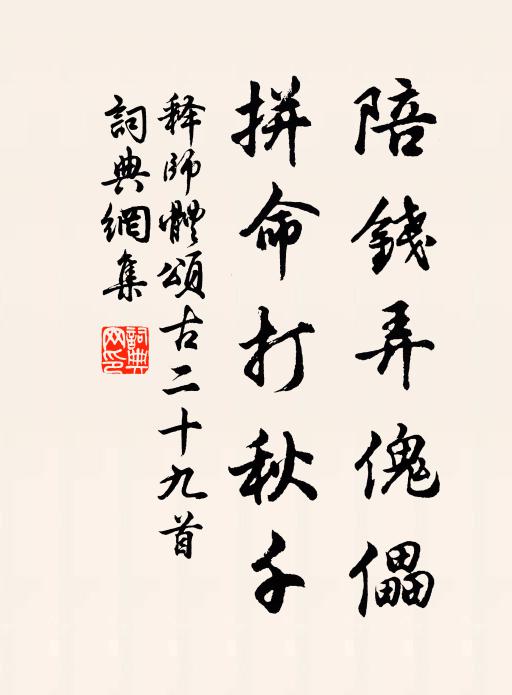 陪錢弄傀儡
拼命打秋千
释師體頌古二十九首
詞典網集
詞典網印